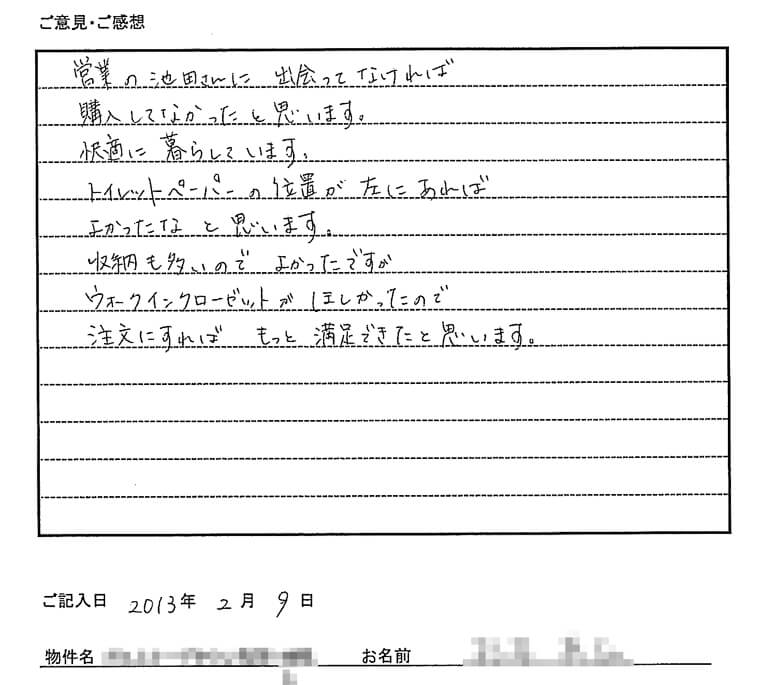 ご意見・ご感想
営業の池田さんに 出会ってなければ
購入してなかったと思います。
快適に暮らしています。
トイレットペーパーの位置が左にあれば
よかったなと思います。
収納も多いので よかったですが
ウォークインクローゼットがほしかったので
注文にすれば もっと満足できたと思います。
ご記入日 2013年 2月 9日
物件名 お名前